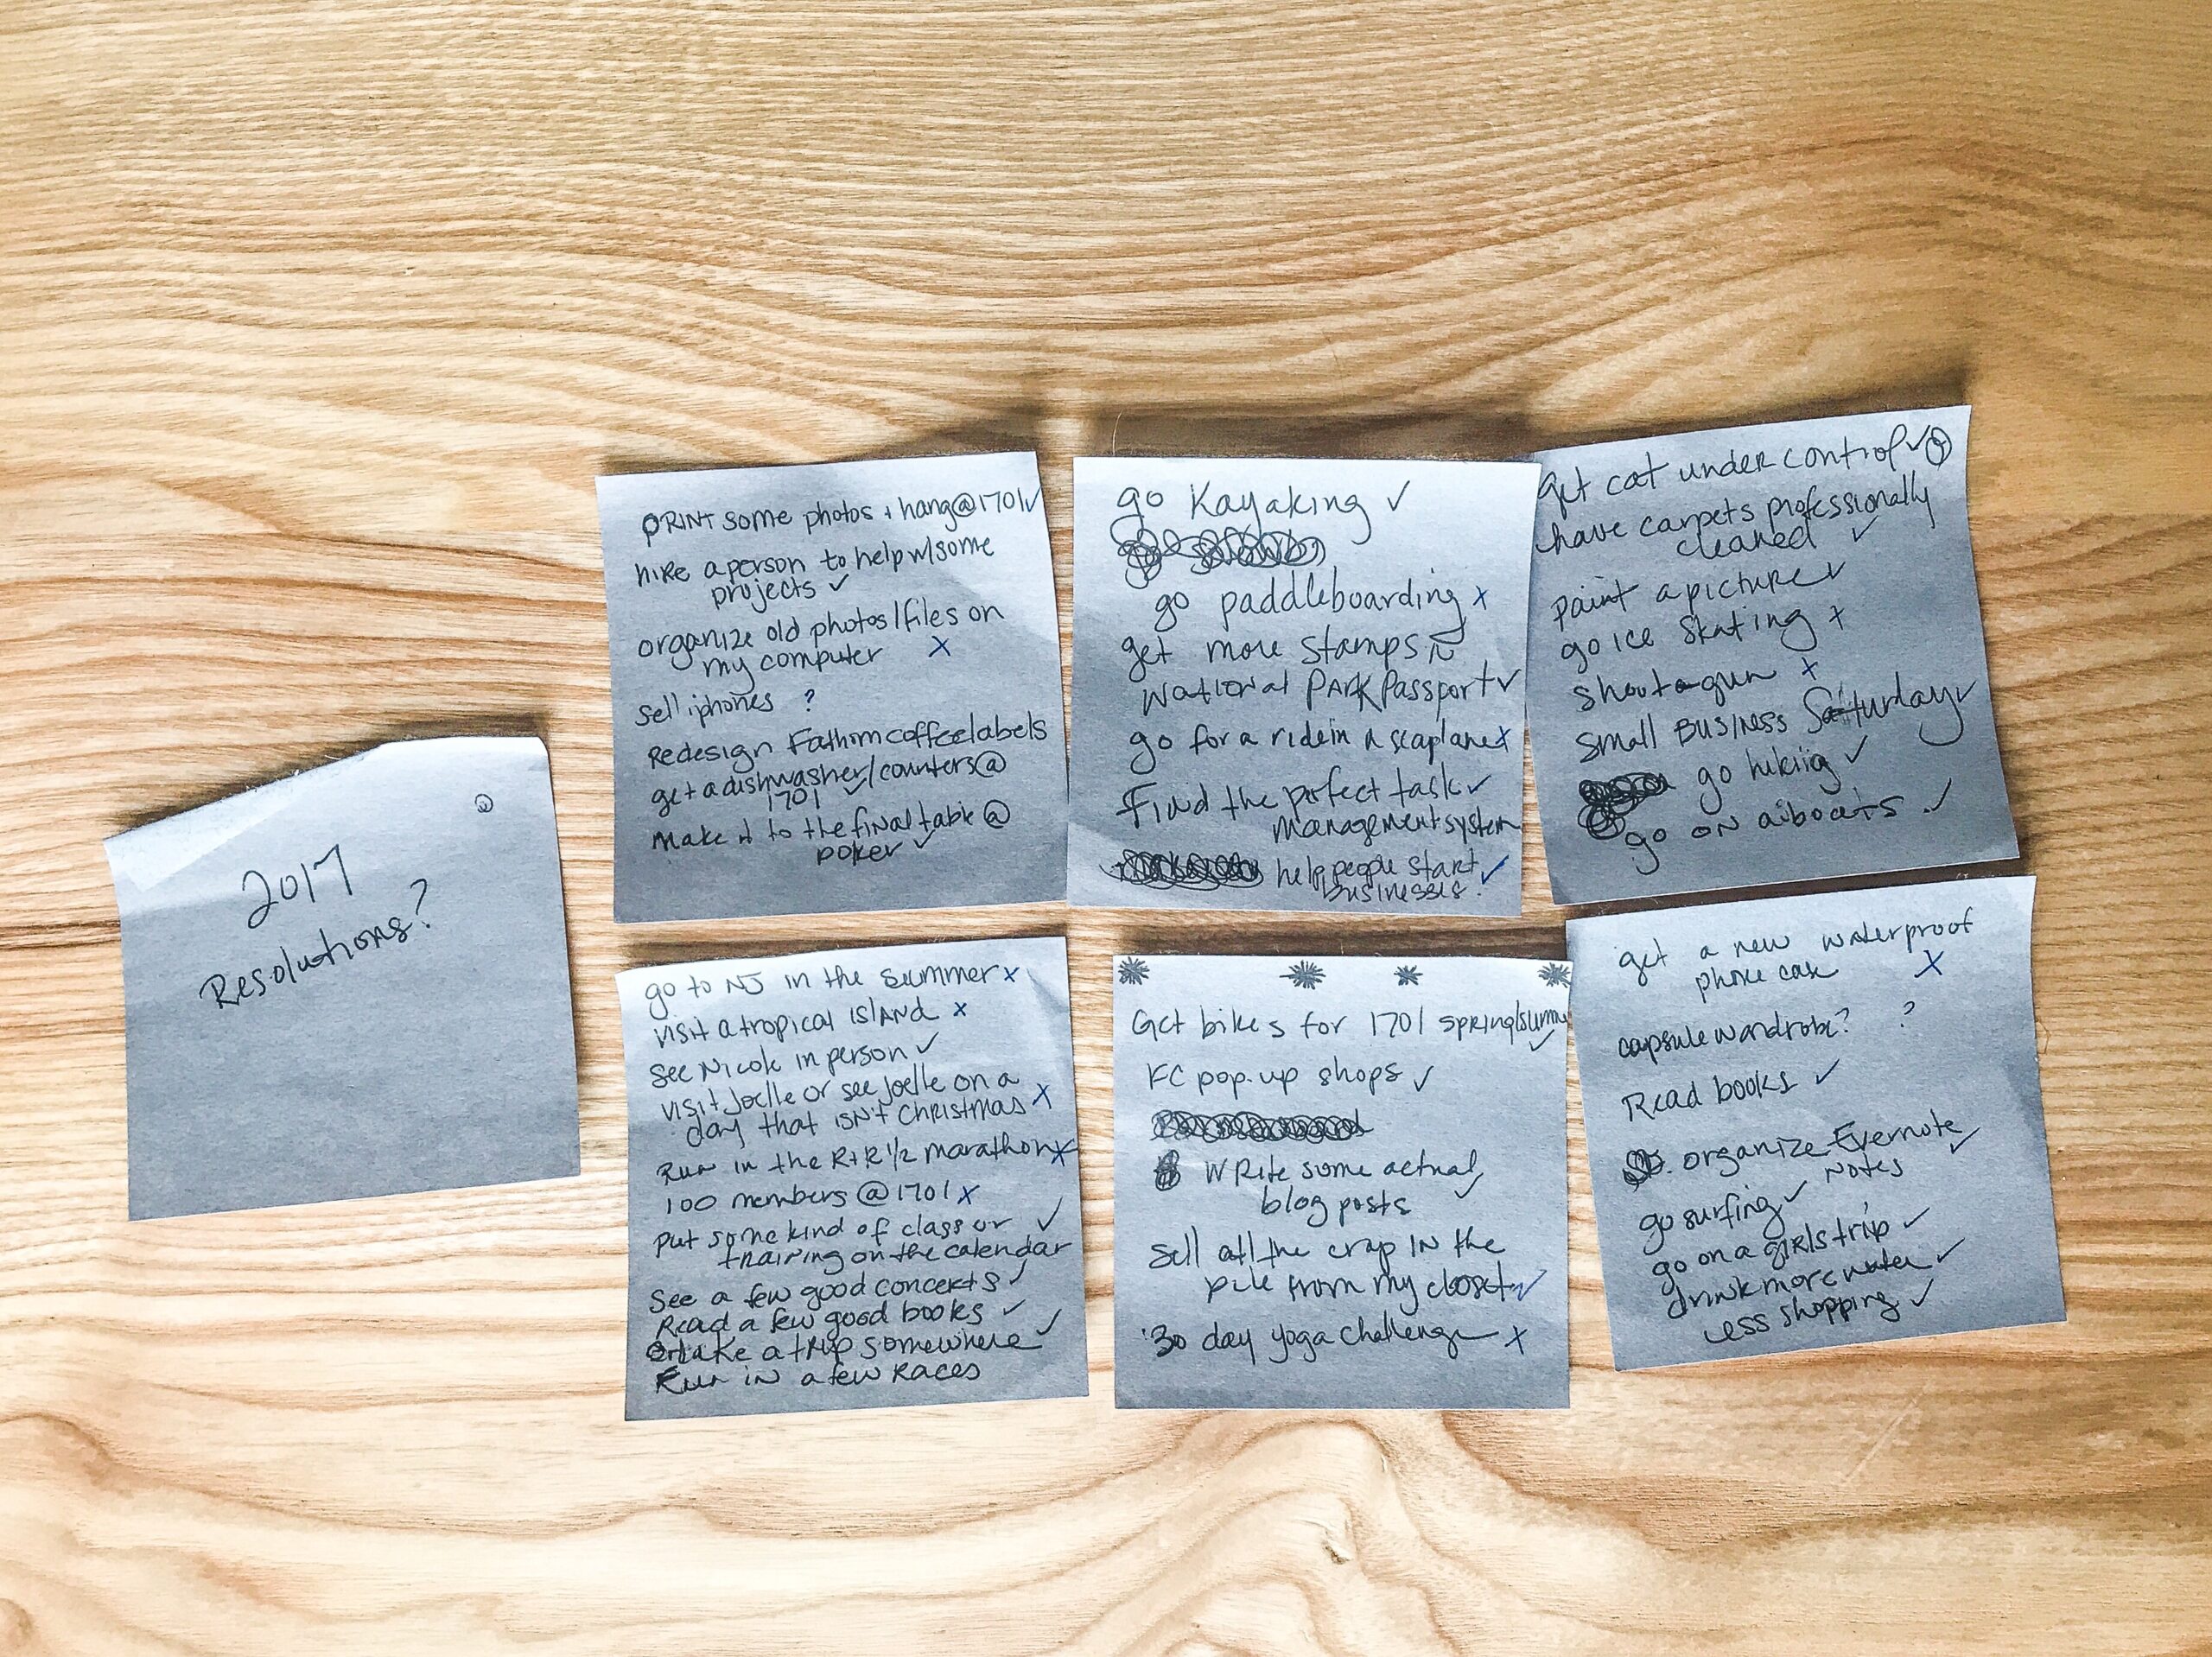 2017
Resolutions?
PRINT some photos + hang@1701✓
hire a person to help w/some
projects ✓
organize old photos/files on
my computer X
sell iphones ?
Redesign Fathom coffee labels
get a dishwasher/counters@
1701 ✓
make it to the final table @
poker ✓
go Kayaking ✓
go paddleboarding x
get more stamps in
National PARK Passport ✓
go for a ride in a seaplane x
Find the perfect task ✓
management system
help people start ✓
businesses.
get cat under control ✓
have carpets professionally
cleaned ✓
paint a picture ✓
go ice skating x
shoot a gun x
small BUSINESS Saturday ✓
go hiking ✓
go ON boats ✓
go to NJ in the summer x
visit a tropical ISLAND x
see Nicole in person ✓
visit Joelle or see Joelle on a
day that ISN'T Christmas x
Run in the R+R 1/2 marathon x
100 members @1701 x
put some kind of class or ✓
training on the calendar
See a few good concerts ✓
Read a few good books ✓
take a trip somewhere ✓
Run in a few Races
Get bikes for 1701 spring/summe
✓
FC pop-up shops ✓
WRite some actual
blog posts ✓
Sell all the crap IN the
pile from my closet ✓
30 day yoga challenge x
get a new waterproof
phone case X
capsule wardrobe? ?
Read books ✓
organize Evernote
Notes ✓
go surfing ✓
go on a girls trip ✓
drink more water ✓
less shopping ✓